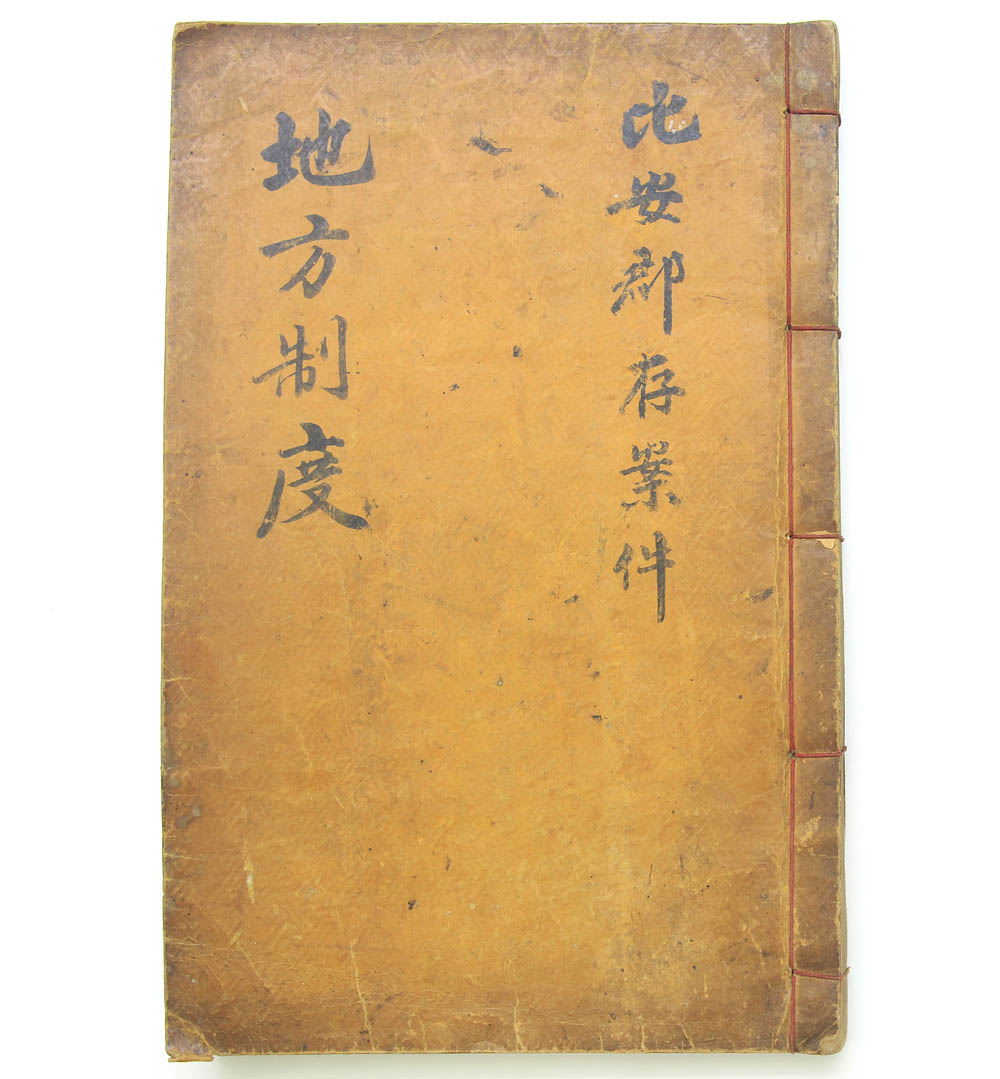 比安郡存案件
地方制度